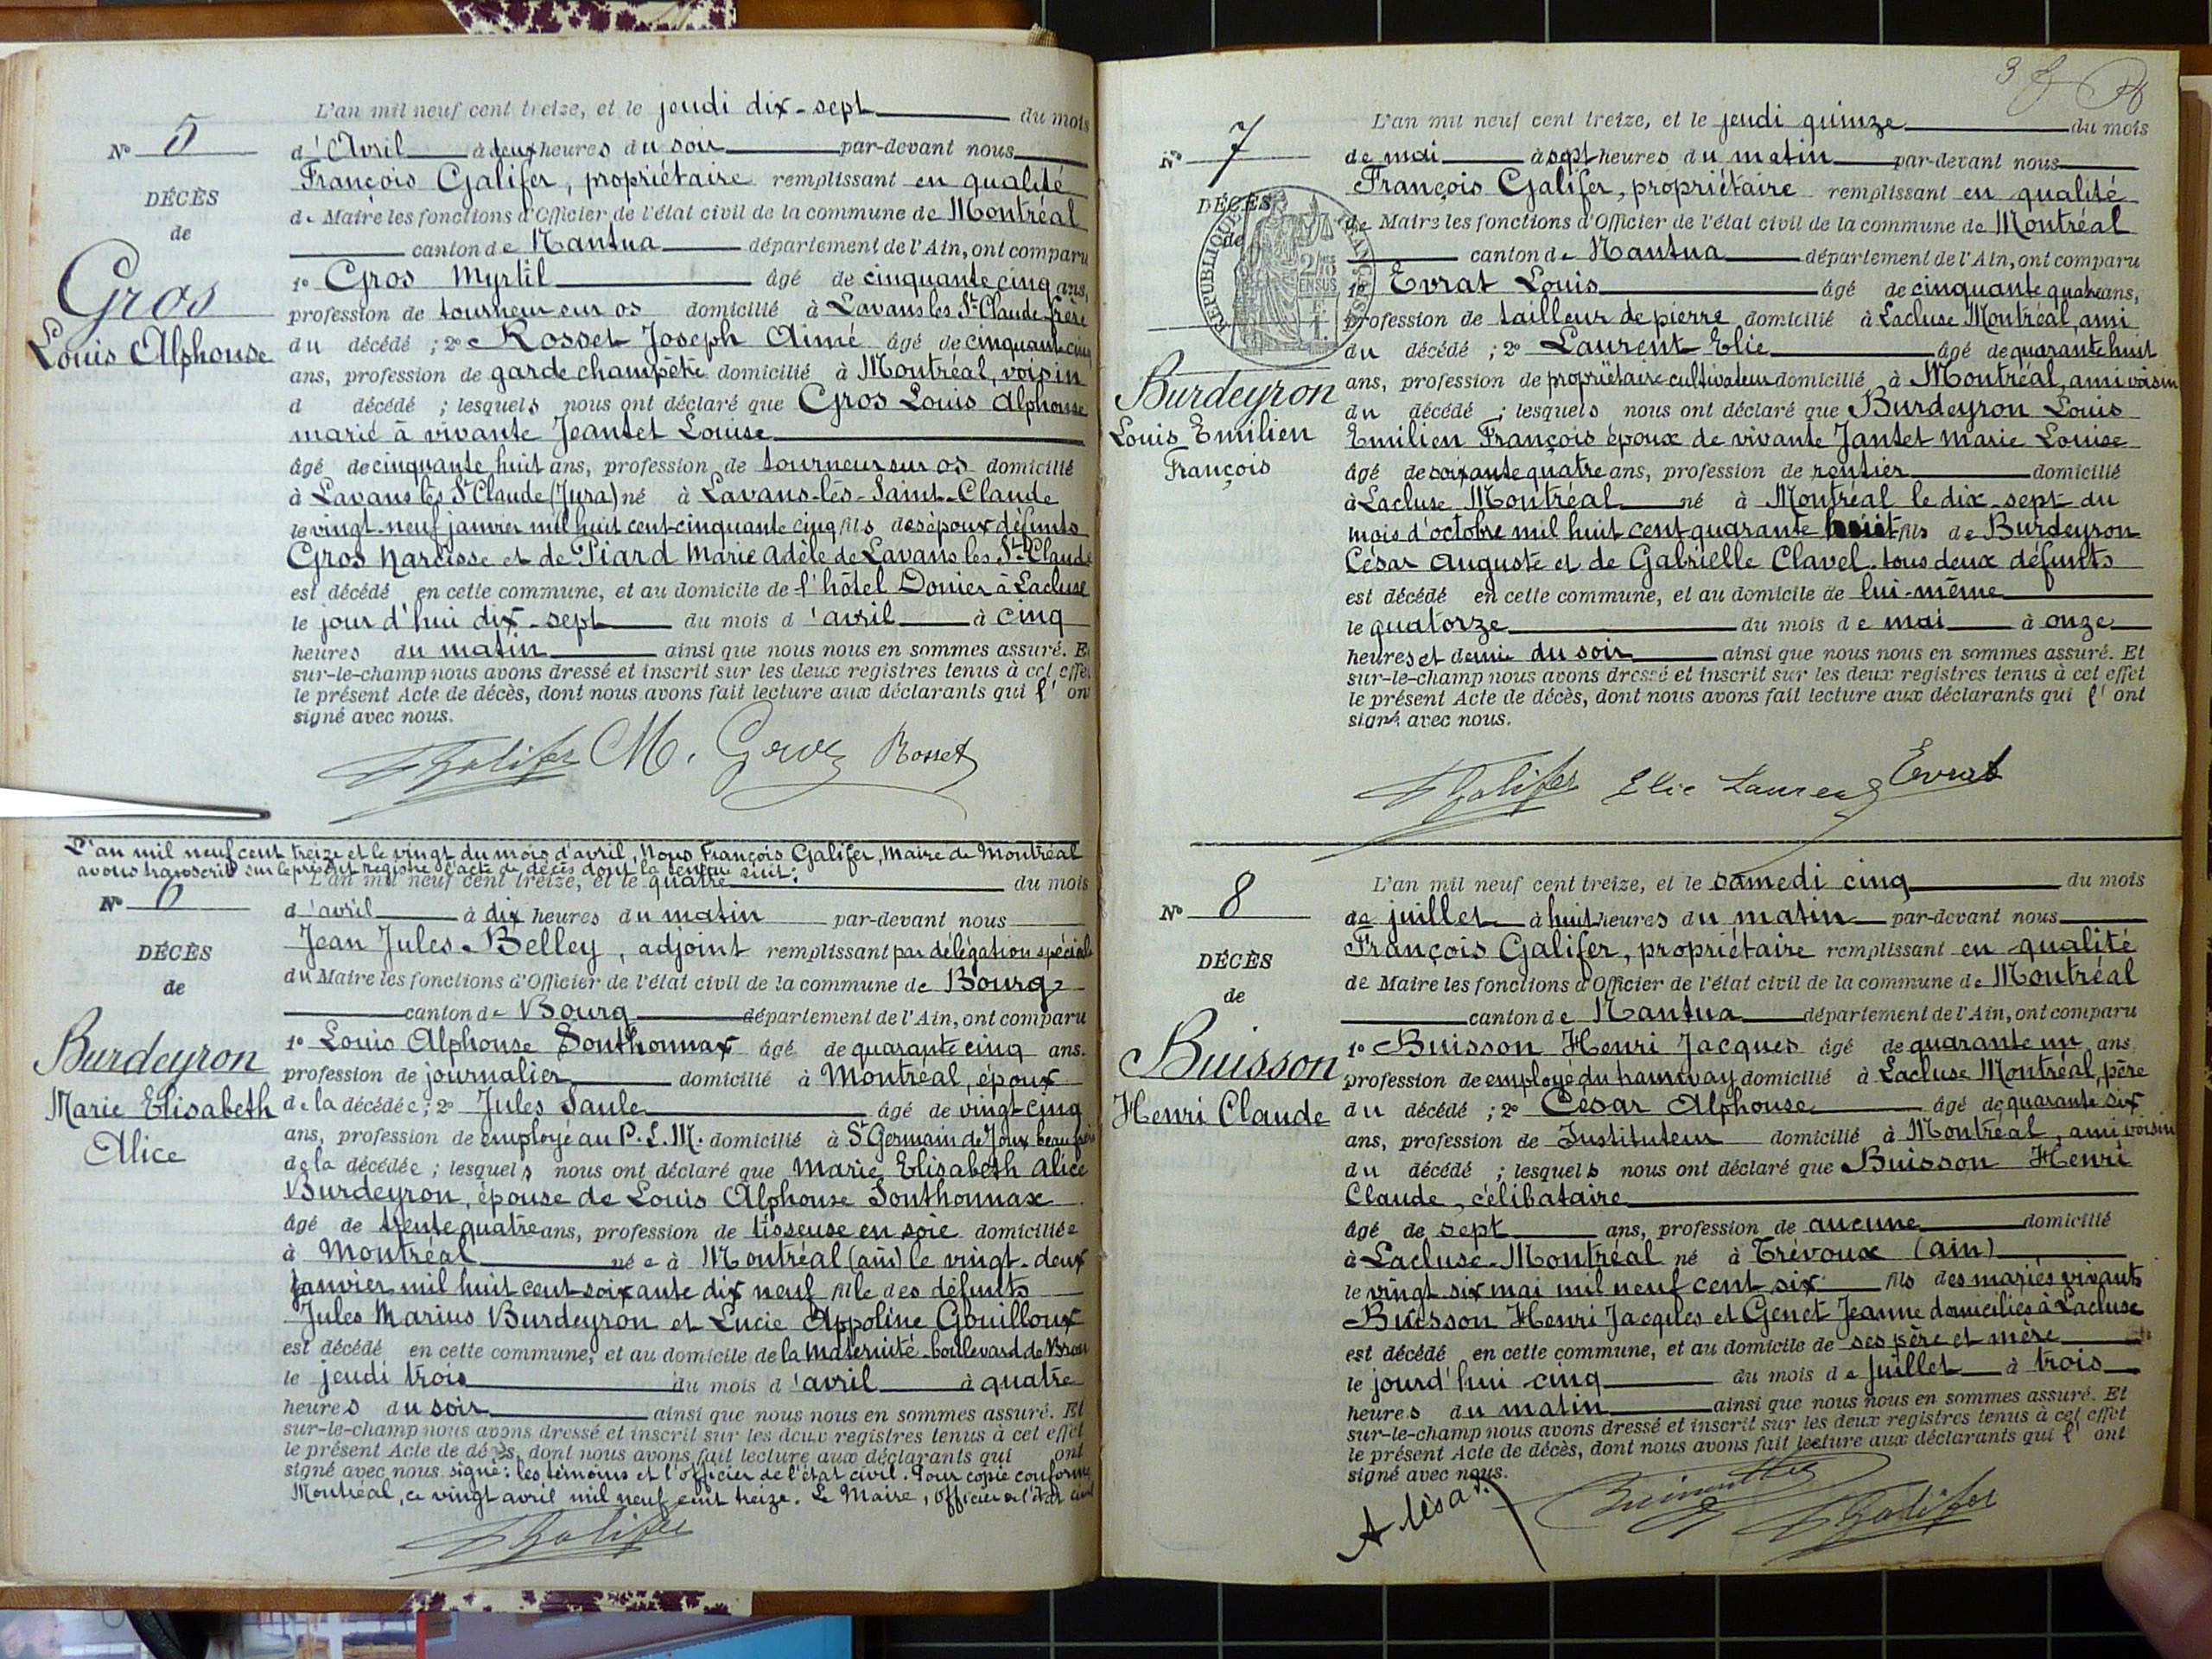 L'an mil neuf cent treize, et le jeudi dix-sept du mois
N° 5
d'Avril à deux heures du soir par-devant nous
François Galifer, propriétaire remplissant en qualité
DÉCÈS
de Maire les fonctions d'Officier de l'état civil de la commune de Montréal
de
canton de Nantua département de l'Ain, ont comparu
Gros
1° Gros Myrtil âgé de cinquante cinq ans,
profession de tourneur sur os domicilié à Lavans les St Claude frère
Louis Alphonse
du décédé ; 2° Rosset Joseph Aimé âgé de cinquante cinq
ans, profession de garde champêtre domicilié à Montréal, voisin
d décédé ; lesquels nous ont déclaré que Gros Louis Alphonse
marié à vivante Jeantet Louise
âgé de cinquante huit ans, profession de tourneur sur os domicilié
à Lavans lès St Claude (Jura) né à Lavans-lès-Saint-Claude
le vingt-neuf janvier mil huit cent cinquante cinq fils des époux défunts
Gros Narcisse et de Piard Marie Adèle de Lavans les St Claude
est décédé en cette commune, et au domicile de l'hôtel Donier à Lacluse
le jour d'hui dix-sept du mois d'avril à cinq
heures du matin ainsi que nous nous en sommes assuré. Et
sur-le-champ nous avons dressé et inscrit sur les deux registres tenus à cet effet
le présent Acte de décès, dont nous avons fait lecture aux déclarants qui l'ont
signé avec nous.
Galifer M. Gros Rosset
L'an mil neuf cent treize et le vingt du mois d'avril, Nous François Galifer, Maire de Montréal
avons transcrit sur le présent registre l'acte de décès dont la teneur suit :
L'an mil neuf cent treize, et le quatre du mois
N° 6
d'avril à dix heures du matin par-devant nous
Jean Jules Belley, adjoint remplissant par délégation spéciale
DÉCÈS
du Maire les fonctions d'Officier de l'état civil de la commune de Bourg
de
canton de Bourg département de l'Ain, ont comparu
1° Louis Alphonse Sonthonnax âgé de quarante cinq ans.
Burdeyron
profession de journalier domicilié à Montréal, époux
Marie Elisabeth
de la décédée ; 2° Jules Saule âgé de vingt-cinq
Alice
ans, profession de employé au P. L. M. domicilié à St Germain de Joux beau frère
de la décédée ; lesquels nous ont déclaré que Marie Elisabeth Alice
Burdeyron, épouse de Louis Alphonse Sonthonnax
âgé de trente quatre ans, profession de tisseuse en soie domiciliée
à Montréal née à Montréal (ain) le vingt-deux
Janvier mil huit cent soixante dix neuf fille des défunts
Jules Marius Burdeyron et Lucie Appoline Gouilloux
est décédé en cette commune, et au domicile de la Maternité boulevard de Brou
le jeudi trois du mois d'avril à quatre
heures du soir ainsi que nous nous en sommes assuré. Et
sur-le-champ nous avons dressé et inscrit sur les deux registres tenus à cet effet
le présent Acte de décès, dont nous avons fait lecture aux déclarants qui ont
signé avec nous. signé : les témoins et l'officier de l'état civil. Pour copie conforme
Montréal, ce vingt avril mil neuf cent treize. Le Maire, officier de l'état civil
Galifer
3
L'an mil neuf cent treize, et le jeudi quinze du mois
N° 7
de mai à sept heures du matin par-devant nous
François Galifer, propriétaire remplissant en qualité
DÉCÈS
de Maire les fonctions d'Officier de l'état civil de la commune de Montréal
de
canton de Nantua département de l'Ain, ont comparu
RÉPUBLIQUE FRANÇAISE
1° Evrat Louis âgé de cinquante quatre ans,
profession de tailleur de pierre domicilié à Lacluse Montréal, ami
du décédé ; 2° Laurent Elie âgé de quarante huit
Burdeyron
ans, profession de propriétaire cultivateur domicilié à Montréal, ami voisin
du décédé ; lesquels nous ont déclaré que Burdeyron Louis
Louis Emilien
Emilien François époux de vivante Jantet Marie Louise
François
âgé de soixante quatre ans, profession de rentier domicilié
à Lacluse Montréal né à Montréal le dix-sept du
mois d'octobre mil huit cent quarante huit fils de Burdeyron
César Auguste et de Gabrielle Clavel tous deux défunts
est décédé en cette commune, et au domicile de lui-même
le quatorze du mois de mai à onze
heures et demie du soir ainsi que nous nous en sommes assuré. Et
sur-le-champ nous avons dressé et inscrit sur les deux registres tenus à cet effet
le présent Acte de décès, dont nous avons fait lecture aux déclarants qui l'ont
signé avec nous.
Galifer Elie Laurent Evrat
L'an mil neuf cent treize, et le samedi cinq du mois
N° 8
de juillet à huit heures du matin par-devant nous
François Galifer, propriétaire remplissant en qualité
DÉCÈS
de Maire les fonctions d'Officier de l'état civil de la commune de Montréal
de
canton de Nantua département de l'Ain, ont comparu
Buisson
1° Buisson Henri Jacques âgé de quarante un ans
profession de employé du tramway domicilié à Lacluse Montréal, père
Henri Claude
du décédé ; 2° César Alphonse âgé de quarante six
ans, profession de Instituteur domicilié à Montréal, ami voisin
du décédé ; lesquels nous ont déclaré que Buisson Henri
Claude, célibataire
âgé de sept ans, profession de aucune domicilié
à Lacluse-Montréal né à Trévoux (ain)
le vingt-six mai mil neuf cent six fils des mariés vivants
Buisson Henri Jacques et Genet Jeanne domiciliés à Lacluse
est décédé en cette commune, et au domicile de ses père et mère
le jourd'hui cinq du mois de juillet à trois
heures du matin ainsi que nous nous en sommes assuré. Et
sur-le-champ nous avons dressé et inscrit sur les deux registres tenus à cet effet
le présent Acte de décès, dont nous avons fait lecture aux déclarants qui l'ont
signé avec nous.
A César Galifer